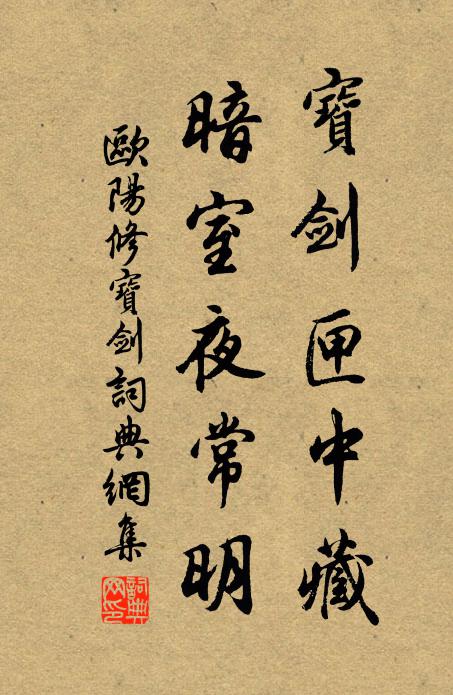 寶劍匣中藏
暗室夜常明
歐陽修寶劍詞典網集
詞典网印